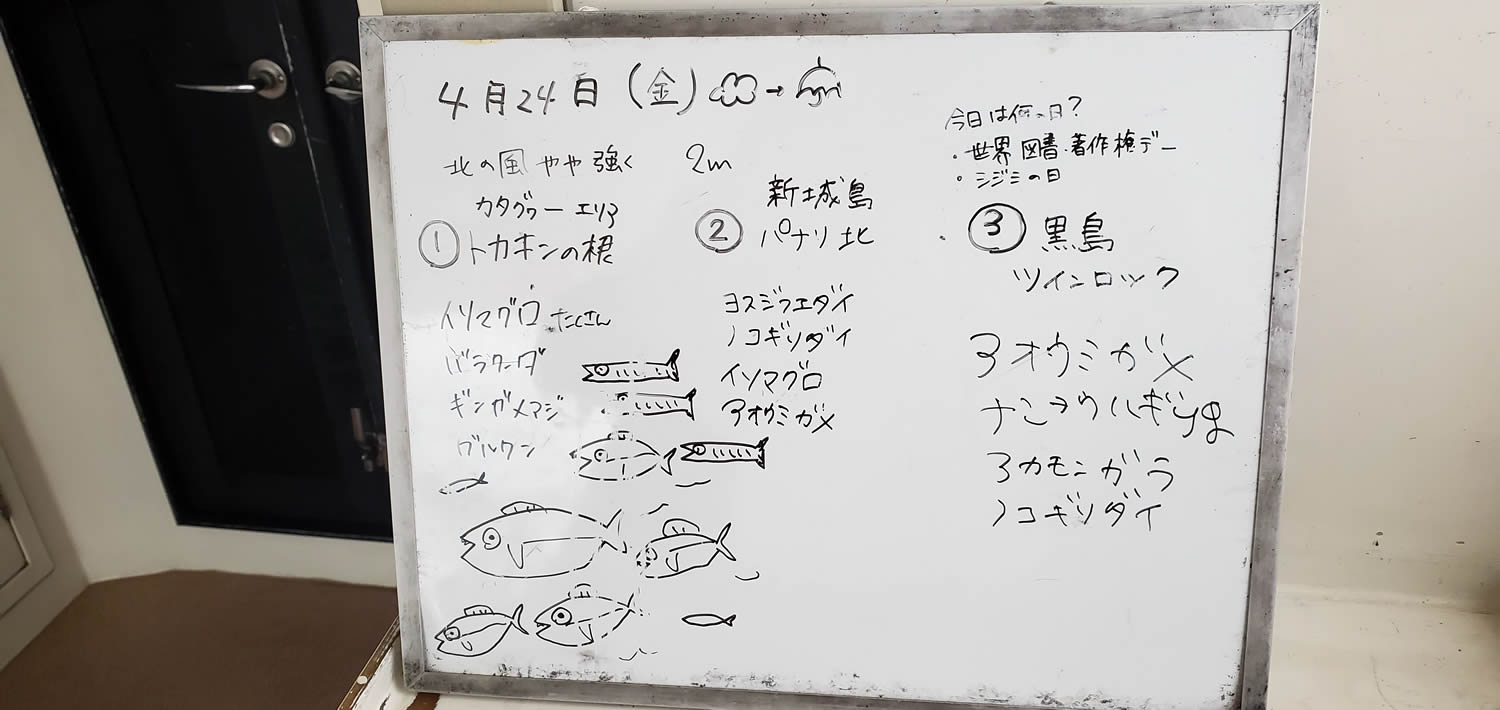 4月24日(金)
北の風 やや強く 2m
今日は何の日?
・世界図書・著作権デー
・シジミの日
カタグゥーエリア
① トカキンの根
イソマグロ たくさん
バラクーダ
ギンガメアジ
グルクン
新城島
② パナリ北
ヨスジフエダイ
ノコギリダイ
イソマグロ
アオウミガメ
③ 黒島
ツインロック
アオウミガメ
ナンヨウハギyg
アカモンガラ
ノコギリダイ